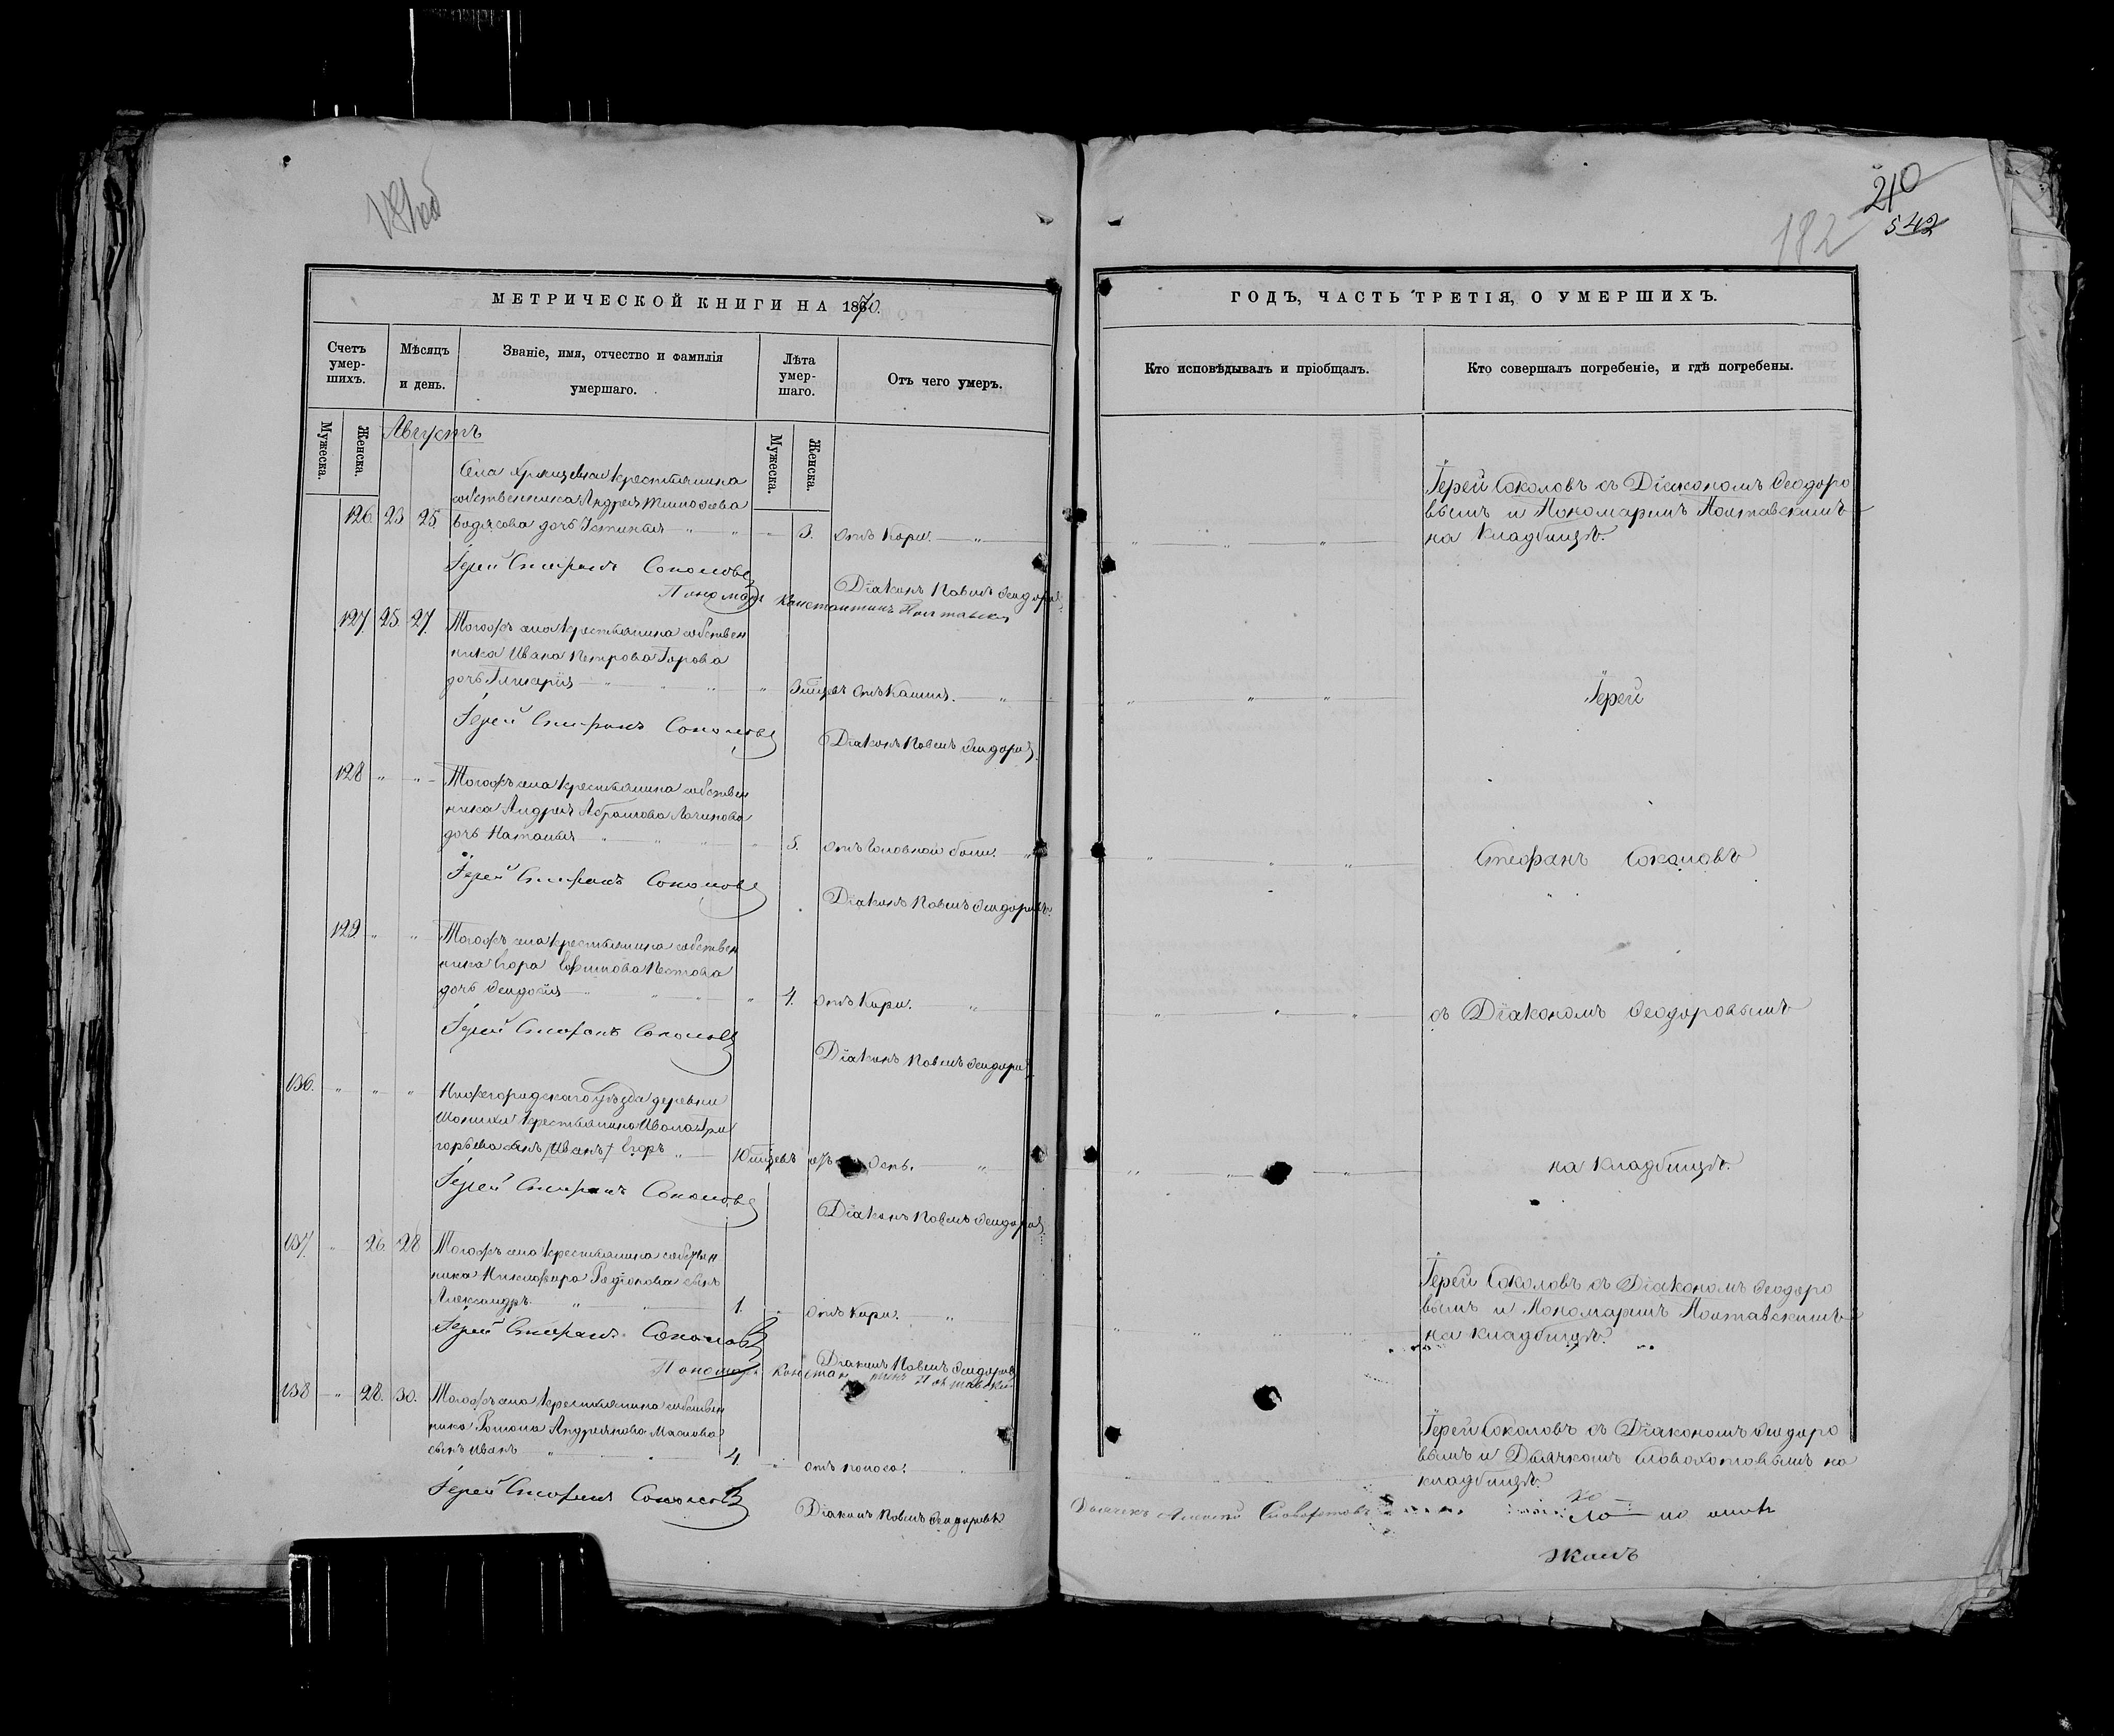 210
182
542
МЕТРИЧЕСКОЙ КНИГИ НА 1870.
ГОДЪ, ЧАСТЬ ТРЕТІЯ, О УМЕРШИХЪ.
Счетъ умер-
шихъ.
Мѣсяцъ
и день.
Званіе, имя, отчество и фамилія
умершаго.
Лѣта
умер-
шаго.
Отъ чего умеръ.
Кто исповѣдывалъ и пріобщалъ.
Кто совершалъ погребеніе, и гдѣ погребены.
Мужеска.
Женска.
Мужеска.
Женска.
Августъ
Села крестьянина
собственника Андрея Тимофеева
126. 23 25 дочь Устинья 3. отъ кори.
Іерей Соколовъ съ Діакономъ Феодоро
вымъ и Пономаремъ Полтавскимъ
на кладбищѣ.
Іерей Стефанъ Соколовъ
Діаконъ Павелъ Феодоровъ
Пономарь Константинъ Полтавскій
127. 25 27. Тогожъ села крестьянина собствен
ника Ивана Петрова
дочь Гликерія отъ кашля.
Іерей
Іерей Стефанъ Соколовъ
Діаконъ Павелъ Феодоровъ
128 Тогожъ села крестьянина собствен
ника Андрея Абрамова
дочь Наталья 5. отъ головной боли.
Стефанъ Соколовъ
Іерей Стефанъ Соколовъ
Діаконъ Павелъ Феодоровъ
129 Тогожъ села крестьянина собствен
ника Егора
дочь Феодосія 4. отъ кори.
съ Діакономъ Феодоровымъ
Іерей Стефанъ Соколовъ
Діаконъ Павелъ Феодоровъ
136. Нижегородскаго уѣзда деревни
крестьянина Ивана Гри
горьева сынъ Иванъ Егоръ
на кладбищѣ.
Іерей Стефанъ Соколовъ
Діаконъ Павелъ Феодоровъ
137. 26. 28 Тогожъ села крестьянина собствен
ника Никифора Родіонова сынъ
Александръ 1. отъ кори.
Іерей Соколовъ съ Діакономъ Феодоро
вымъ и Пономаремъ Полтавскимъ
на кладбищѣ.
Іерей Стефанъ Соколовъ
Діаконъ Павелъ Феодоровъ
Пономарь Константинъ Полтавскій
138 28. 30. Тогожъ села крестьянина собствен
ника Романа Андреянова Маслова
сынъ Иванъ 4. отъ поноса.
Іерей Соколовъ съ Діакономъ Феодоро
вымъ и Дьячкомъ Словохотовымъ на
кладбищѣ.
Іерей Стефанъ Соколовъ
Діаконъ Павелъ Феодоровъ
Дьячекъ Алексѣй Словохотовъ